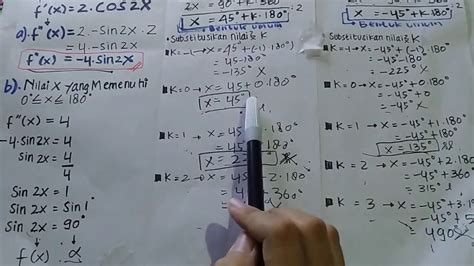 f'(x) = 2. COS 2X
a). f"(x) = 2.-Sin2x.2
f"(x) = -4.Sin2x
b). Nilai X yang Memenuhi
0° ≤ X ≤ 180°
f"(x) = 4
-4 sin2x = 4
Sin 2x = 1
Sin 2x = Sin
Sin 2x = 90°
f(x) α
2x = 90° + k.360°
X = 45° + k.180°
• Bentuk Umum
• Substitusikan nilai k
K=-1 → X = 45° + (-1).180°
= 45 - 180
= -135° X
K=0 → X = 45 + 0.180°
X = 45°
K=1 → X = 45 .180°
= 45 180°
X = 22
K=2 → X = 45 2.180°
= 4 360°
X = -45° + k.180°
• Bentuk Umum
• Substitusikan nilai k
= -45 - 180°
= -225° X
K=0 → X = -45° + 0.180°
= -45° X
K=1 → X = -45° + 1.180°
= -45° + 180°
X = 135°
K=2 → X = -45° + 2.180°
= -45° + 360°
= 315°
K = 3 → X = -45° + 3.18
= -45° + 5
490 X